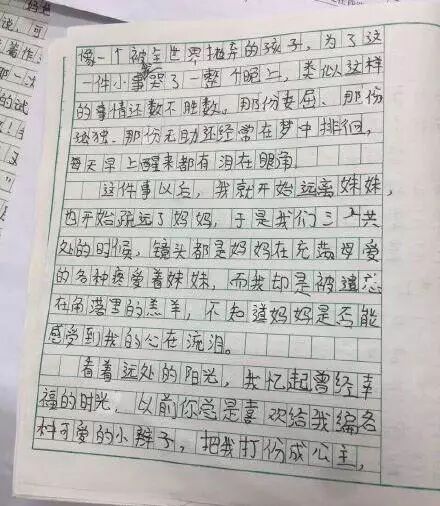 像一个被全世界抛弃的孩子，为了这
一件小事哭了一整个晚上，类似这样
的事情还数不胜数，那份委屈、那份
孤独、那份无助还经常在梦中排徊，
每天早上醒来都有泪在眼角。
这件事以后，我就开始远离妹妹，
也开始疏远了妈妈，于是我们三人共
处的时候，镜头都是妈妈在充满母爱
的各种疼爱着妹妹，而我却是被遗忘
在角落里的羔羊，不知道妈妈是否能
感受到我的心在流泪。
看着远处的阳光，我忆起曾经幸
福的时光，以前你总是喜欢给我编各
种可爱的小辫子，把我打份成公主，